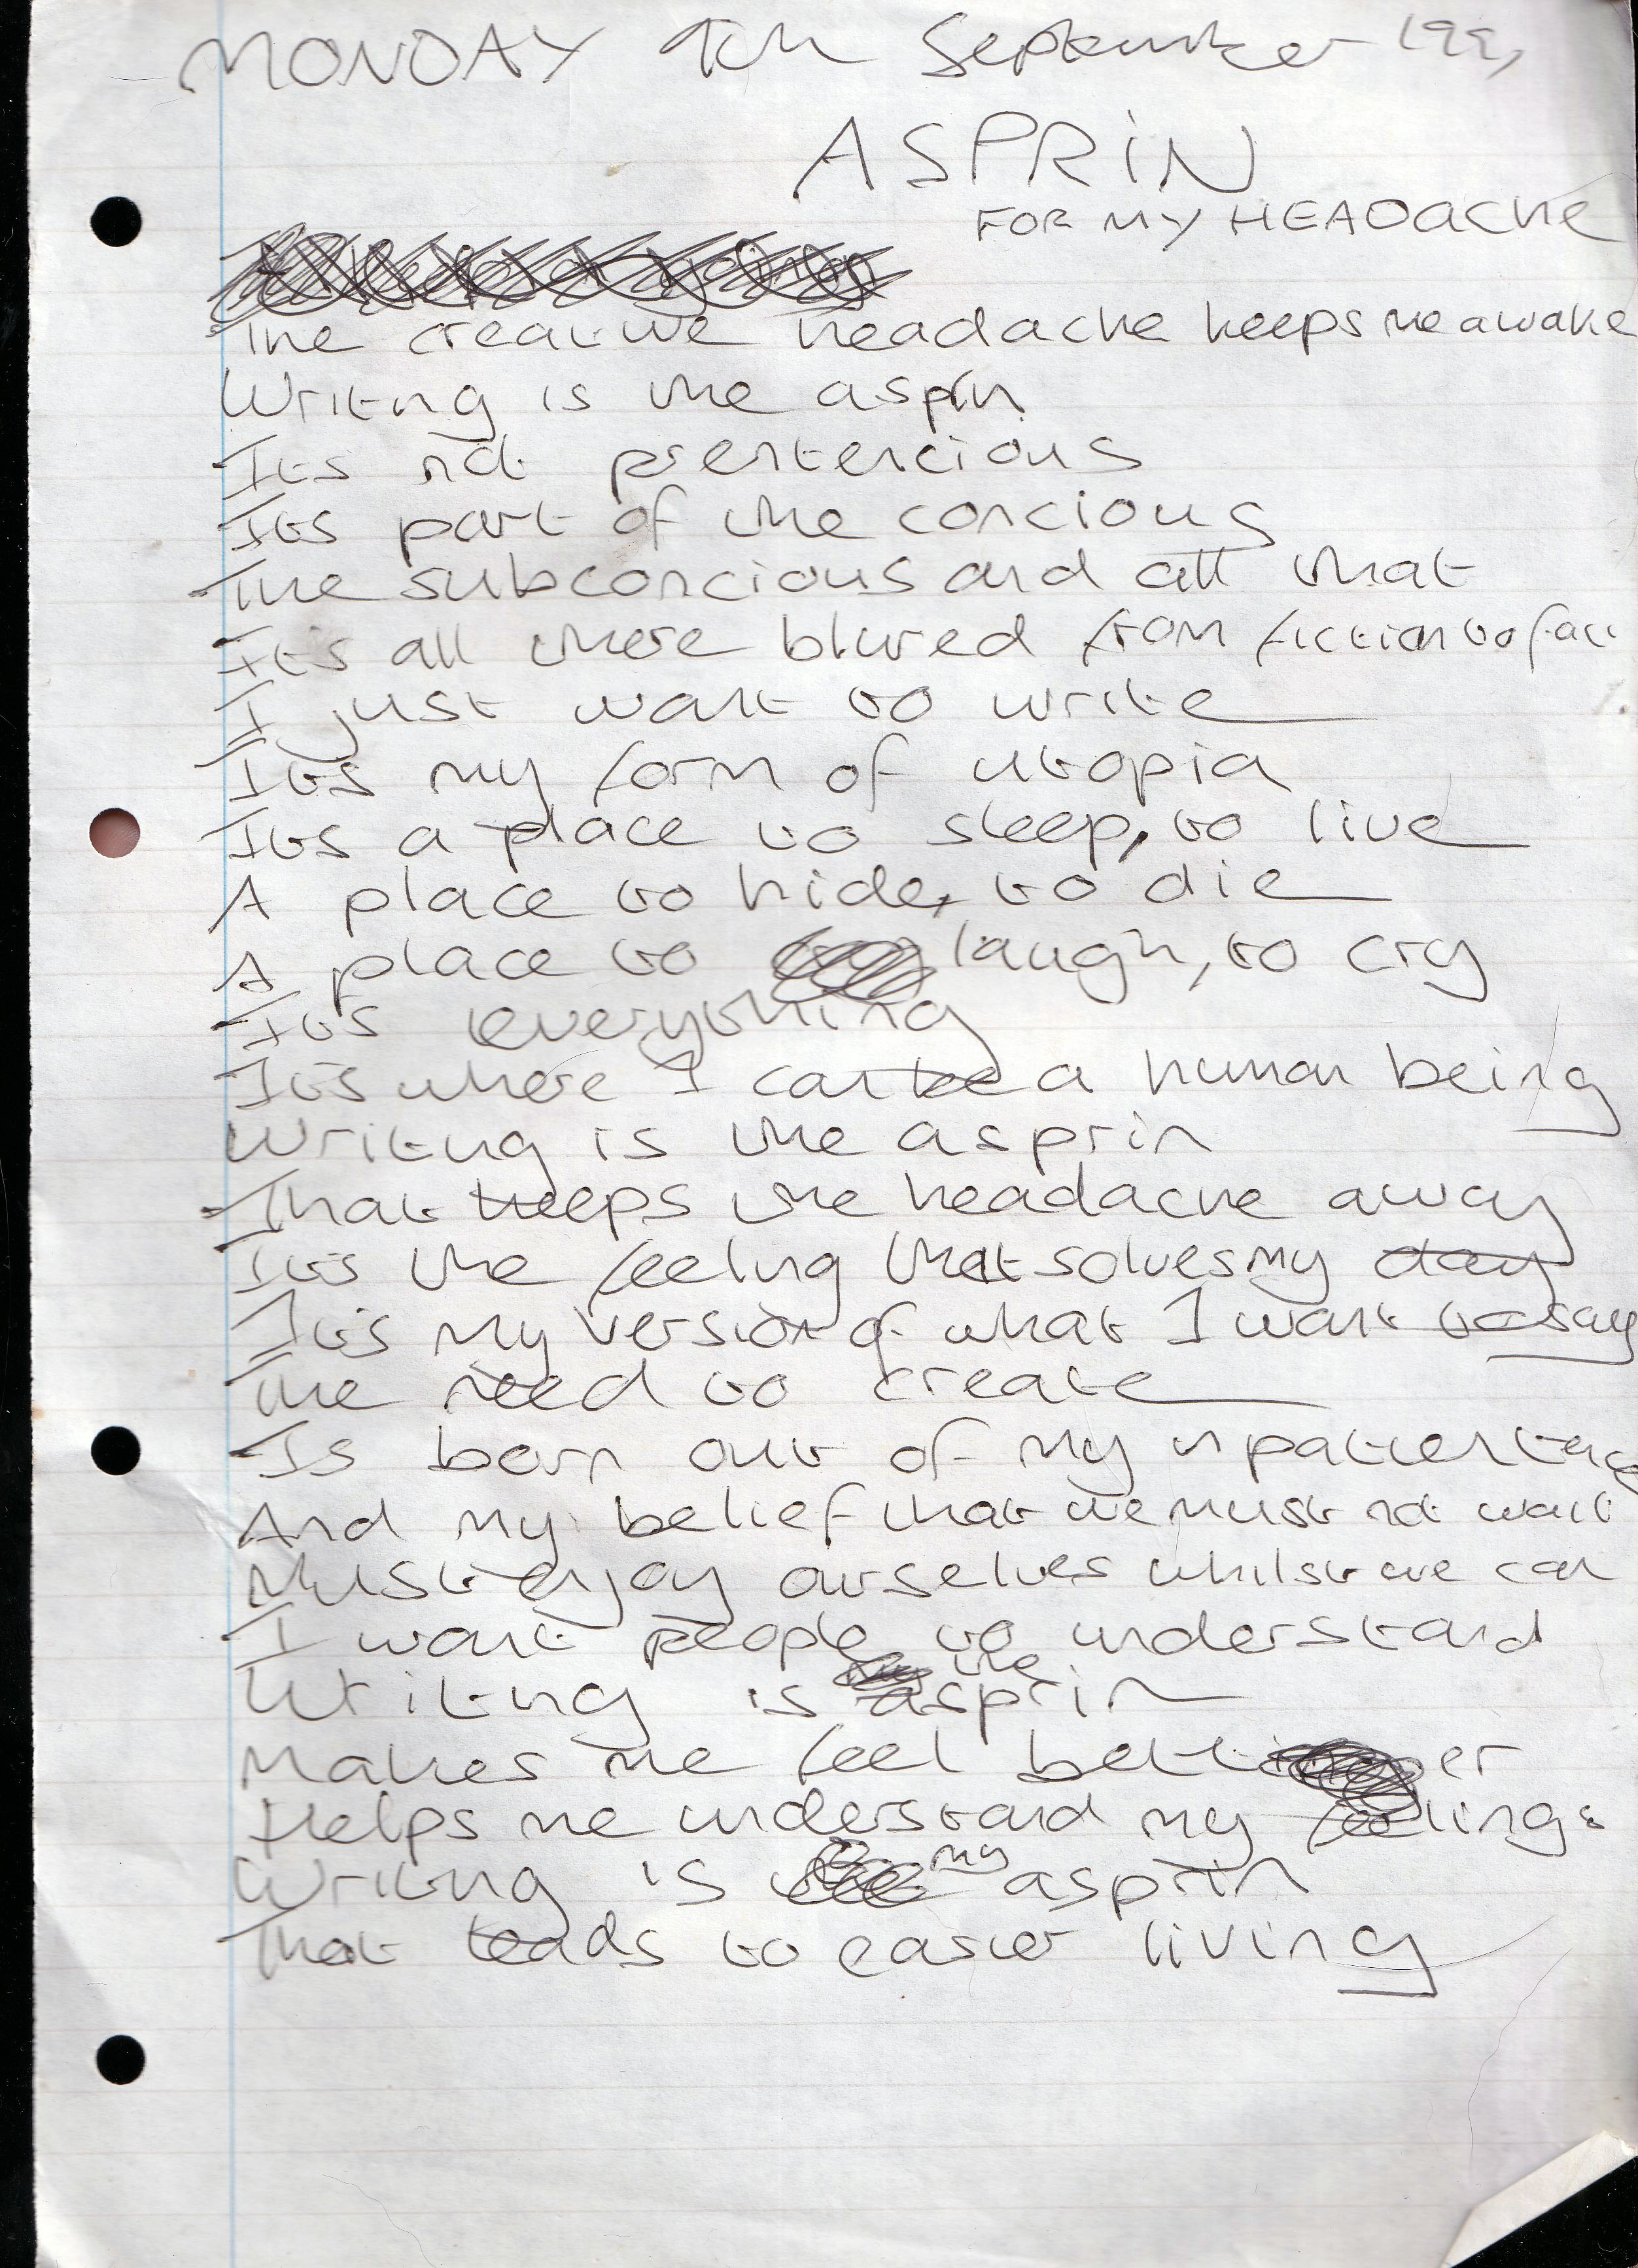 MONDAY 9th September 1991
ASPRIN
FOR MY HEADACHE
The creative headache keeps me awake
Writing is the asprin
Its not prentencious
Its part of the concious
The subconcious and all that
It's all there blured from fiction to fact
I just want to write
Its my form of utopia
Its a place to sleep, to live
A place to hide, to die
A place to laugh, to cry
Its everything
It's where I can be a human being
Writing is the asprin
That keeps the headache away
It's the feeling that solves my day
It's my version of what I want to say
The need to create
Is born out of my
And my belief that we must not wait
Must enjoy ourselves whilst we can
I want people to understand
Writing is the asprin
Makes me feel better
Helps me understand my feelings
Writing is my asprin
That leads to easier living